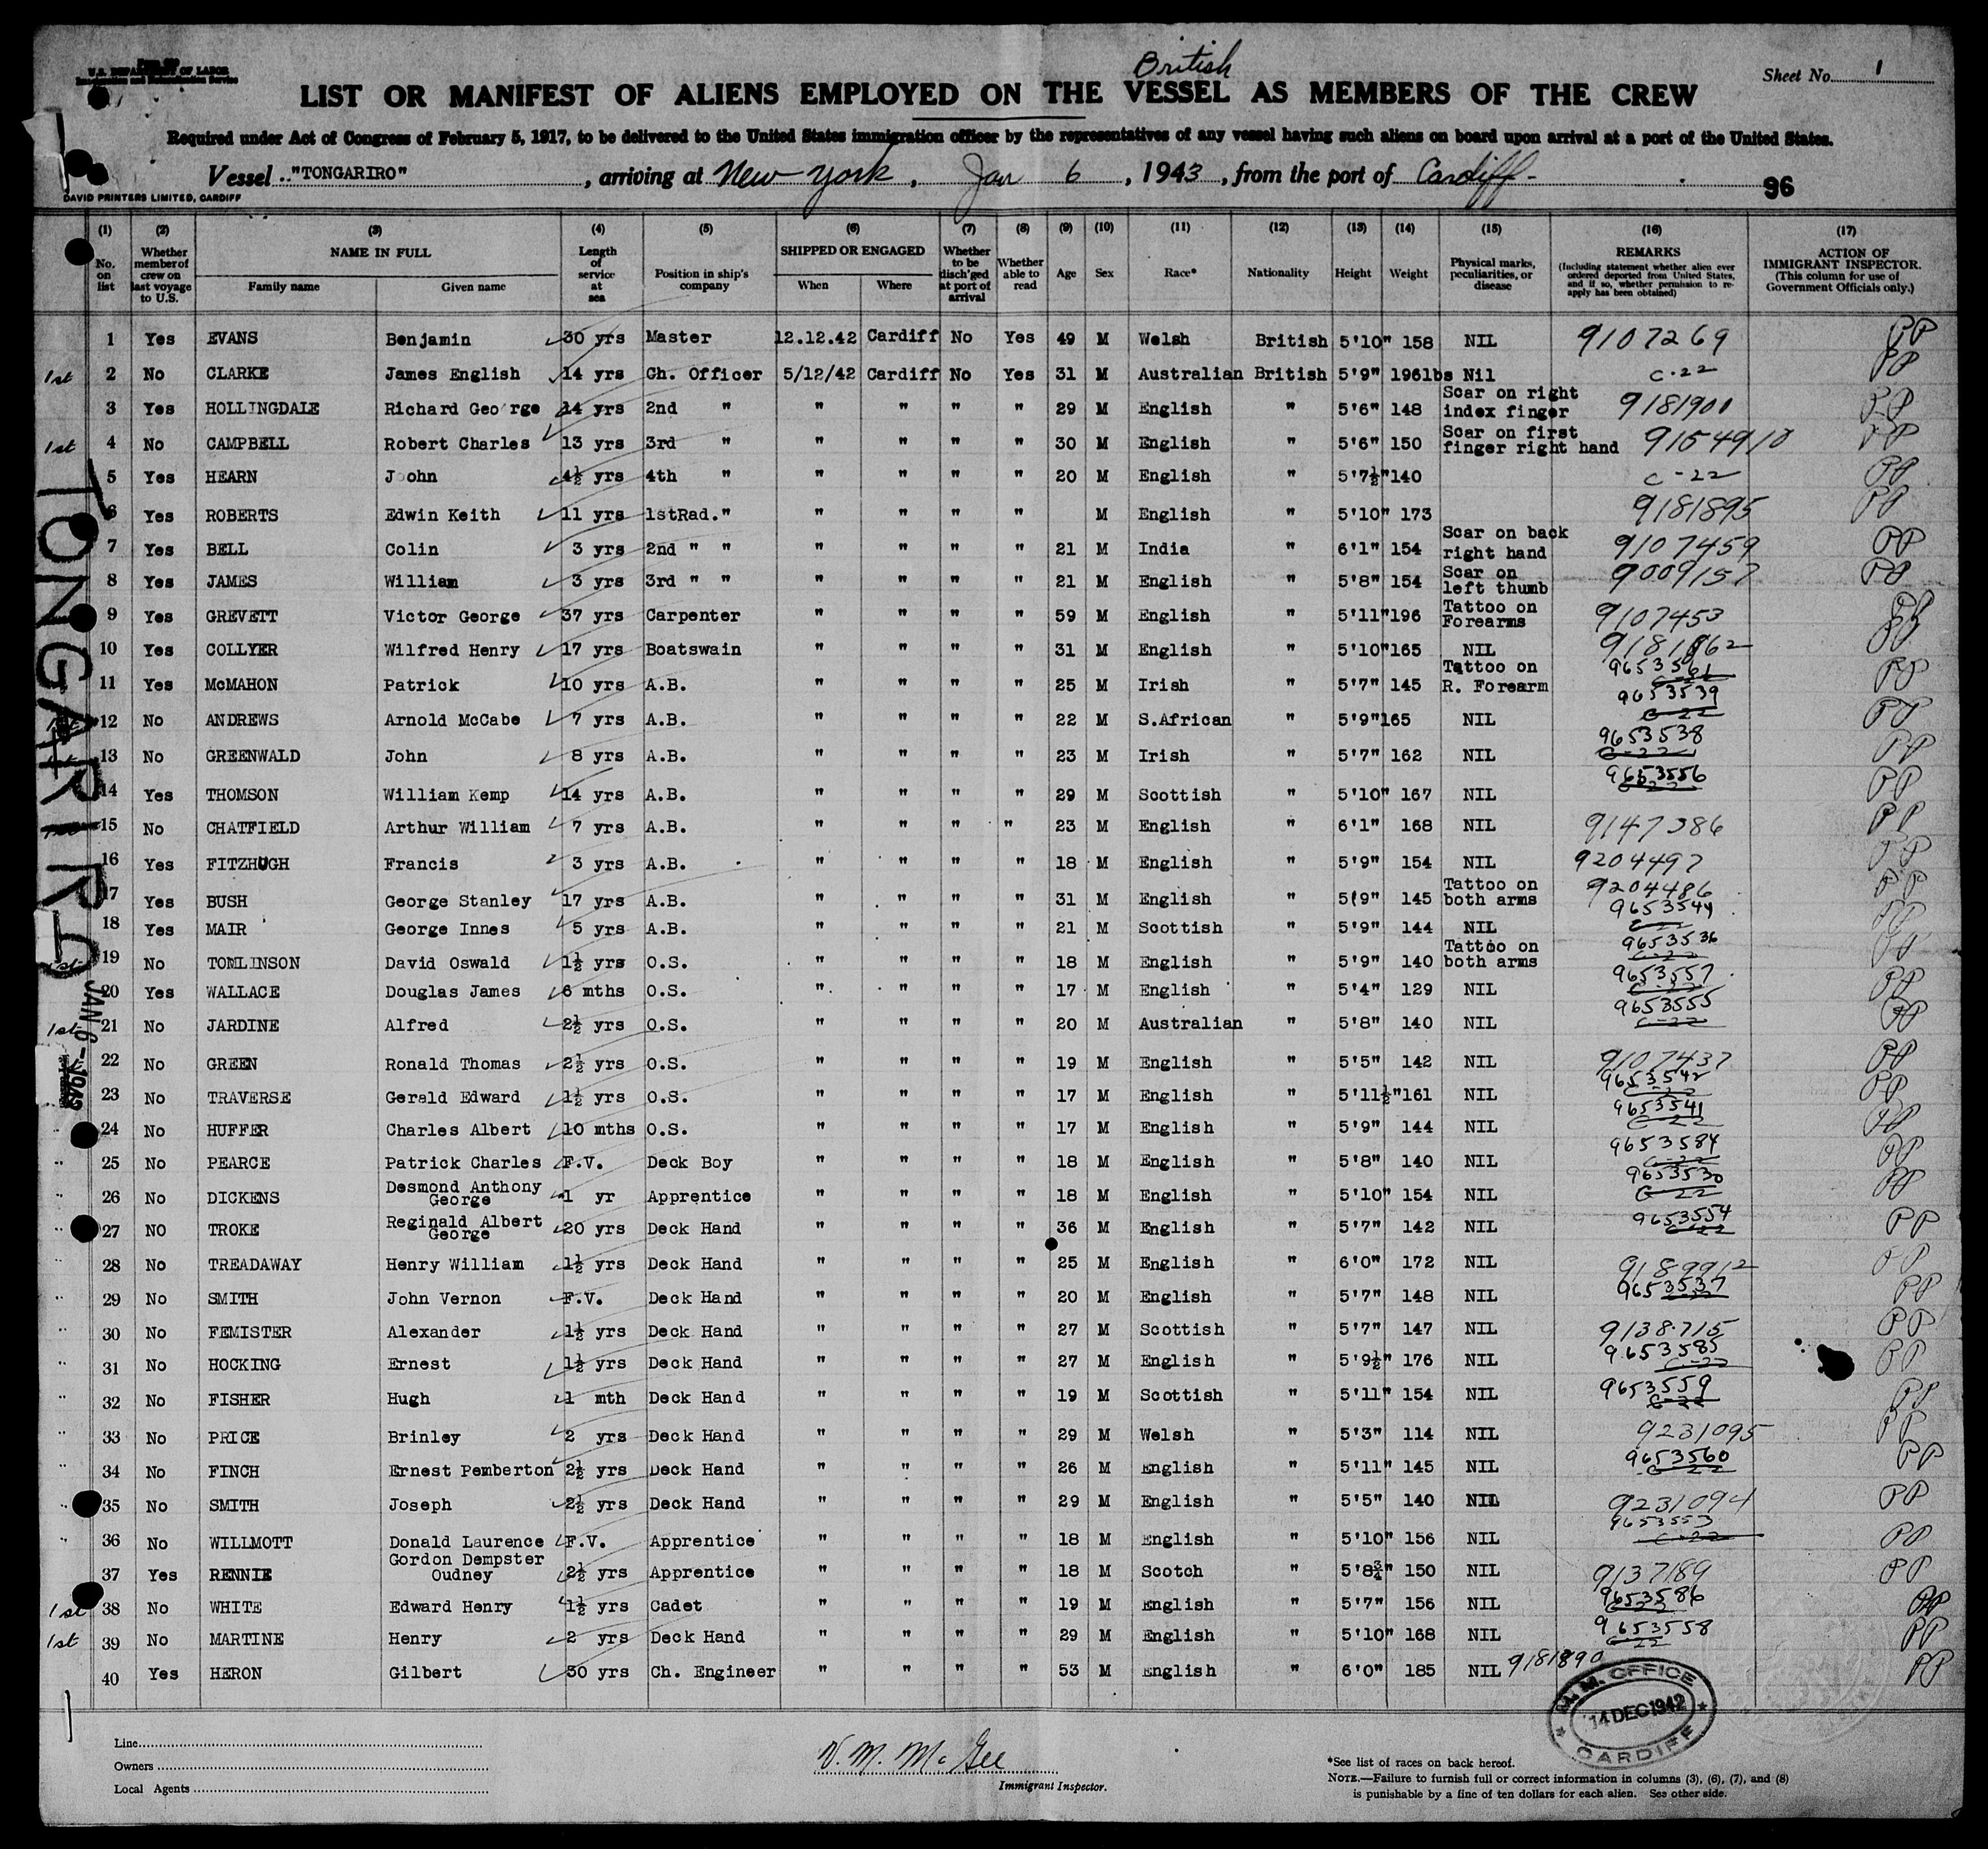 British
U.S. DEPARTMENT OF LABOR
Sheet No. 1
LIST OR MANIFEST OF ALIENS EMPLOYED ON THE VESSEL AS MEMBERS OF THE CREW
Required under Act of Congress of February 5, 1917, to be delivered to the United States immigration officer by the representatives of any vessel having such aliens on board upon arrival at a port of the United States.
Vessel "TONGARIRO", arriving at New York, Jan 6, 1943, from the port of Cardiff 96
DAVID PRINTERS LIMITED, CARDIFF
(1) (2) (3) (4) (5) (6) (7) (8) (9) (10) (11) (12) (13) (14) (15) (16) (17)
No. on list Whether member of crew on last voyage to U.S. NAME IN FULL Family name Given name Length of service at sea Position in ship's company SHIPPED OR ENGAGED When Where Whether to be disch'ged at port of arrival Whether able to read Age Sex Race* Nationality Height Weight Physical marks, peculiarities, or disease REMARKS (Including statement whether alien ever ordered deported from United States, and if so, whether permission to re-apply has been obtained) ACTION OF IMMIGRANT INSPECTOR. (This column for use of Government Officials only.)
1 Yes EVANS Benjamin 30 yrs Master 12.12.42 Cardiff No Yes 49 M Welsh British 5'10" 158 NIL 9107269 PP
1st 2 No CLARKE James English 14 yrs Ch. Officer 5/12/42 Cardiff No Yes 31 M Australian British 5'9" 196lbs Nil C-22 PP
3 Yes HOLLINGDALE Richard George 14 yrs 2nd " " " " " 29 M English " 5'6" 148 Scar on right index finger 9181900 PP
1st 4 No CAMPBELL Robert Charles 13 yrs 3rd " " " " " 30 M English " 5'6" 150 Scar on first finger right hand 9154910 PP
5 Yes HEARN John 4½ yrs 4th " " " " " 20 M English " 5'7½" 140 C-22 PP
6 Yes ROBERTS Edwin Keith 11 yrs 1stRad." " " " " M English " 5'10" 173 9181895 PP
7 Yes BELL Colin 3 yrs 2nd " " " " " " 21 M India " 6'1" 154 Scar on back right hand 9107459 PP
8 Yes JAMES William 3 yrs 3rd " " " " " " 21 M English " 5'8" 154 Scar on left thumb 9009157 PP
9 Yes GREVETT Victor George 37 yrs Carpenter " " " " 59 M English " 5'11" 196 Tattoo on Forearms 9107453 PP
10 Yes COLLYER Wilfred Henry 17 yrs Boatswain " " " " 31 M English " 5'10" 165 NIL PP
11 Yes McMAHON Patrick 10 yrs A.B. " " " " 25 M Irish " 5'7" 145 Tattoo on R. Forearm 9653561 C-22 PP
12 No ANDREWS Arnold McCabe 7 yrs A.B. " " " " 22 M S.African " 5'9" 165 NIL 9653539 C-22 PP
13 No GREENWALD John 8 yrs A.B. " " " " 23 M Irish " 5'7" 162 NIL 9653538 C-22 PP
14 Yes THOMSON William Kemp 14 yrs A.B. " " " " 29 M Scottish " 5'10" 167 NIL 9653556 C-22 PP
15 No CHATFIELD Arthur William 7 yrs A.B. " " " " 23 M English " 6'1" 168 NIL 9147386 PP
16 Yes FITZHUGH Francis 3 yrs A.B. " " " " 18 M English " 5'9" 154 NIL 9204497 PP
17 Yes BUSH George Stanley 17 yrs A.B. " " " " 31 M English " 5'9" 145 Tattoo on both arms 9204486 PP
18 Yes MAIR George Innes 5 yrs A.B. " " " " 21 M Scottish " 5'9" 144 NIL 9653544 C-22 PP
1st 19 No TOMLINSON David Oswald 1½ yrs O.S. " " " " 18 M English " 5'9" 140 Tattoo on both arms 9653536 C-22 PP
20 Yes WALLACE Douglas James 6 mths O.S. " " " " 17 M English " 5'4" 129 NIL 9653557 C-22 PP
1st 21 No JARDINE Alfred 2½ yrs O.S. " " " " 20 M Australian " 5'8" 140 NIL 9653555 C-22 PP
22 No GREEN Ronald Thomas 2½ yrs O.S. " " " " 19 M English " 5'5" 142 NIL 9107437 PP
23 No TRAVERSE Gerald Edward 1½ yrs O.S. " " " " 17 M English " 5'11½" 161 NIL 9653542 C-22 PP
24 No HUFFER Charles Albert 10 mths O.S. " " " " 17 M English " 5'9" 144 NIL 9653541 C-22 PP
" 25 No PEARCE Patrick Charles F.V. Deck Boy " " " " 18 M English " 5'8" 140 NIL 9653584 C-22 PP
" 26 No DICKENS Desmond Anthony George 1 yr Apprentice " " " " 18 M English " 5'10" 154 NIL 9653530 C-22 PP
" 27 NO TROKE Reginald Albert George 20 yrs Deck Hand " " " " 36 M English " 5'7" 142 NIL 9653554 C-22 PP
" 28 No TREADAWAY Henry William 1½ yrs Deck Hand " " " " 25 M English " 6'0" 172 NIL 9189912 PP
" 29 No SMITH John Vernon F.V. Deck Hand " " " " 20 M English " 5'7" 148 NIL 9653537 PP
" 30 No FEMISTER Alexander 1½ yrs Deck Hand " " " " 27 M Scottish " 5'7" 147 NIL 9138715 PP
" 31 No HOCKING Ernest 1½ yrs Deck Hand " " " " 27 M English " 5'9½" 176 NIL 9653585 C-22 PP
" 32 No FISHER Hugh 1 mth Deck Hand " " " " 19 M Scottish " 5'11" 154 NIL 9653559 C-22 PP
" 33 No PRICE Brinley 2 yrs Deck Hand " " " " 29 M Welsh " 5'3" 114 NIL 9231095 PP
" 34 No FINCH Ernest Pemberton 2½ yrs Deck Hand " " " " 26 M English " 5'11" 145 NIL 9653560 C-22 PP
" 35 No SMITH Joseph 2½ yrs Deck Hand " " " " 29 M English " 5'5" 140 NIL 9231094 PP
" 36 No WILLMOTT Donald Laurence F.V. Apprentice " " " " 18 M English " 5'10" 156 NIL 9653553 C-22 PP
37 Yes RENNIE Gordon Dempster Oudney 2½ yrs Apprentice " " " " 18 M Scotch " 5'8¾" 150 NIL 9137189 PP
1st 38 No WHITE Edward Henry 1½ yrs Cadet " " " " 19 M English " 5'7" 156 NIL 9653586 C-22 PP
1st 39 No MARTINE Henry 2 yrs Deck Hand " " " " 29 M English " 5'10" 168 NIL 9653558 C-22 PP
40 Yes HERON Gilbert 30 yrs Ch. Engineer " " " " 53 M English " 6'0" 185 NIL 9181890 PP
TONGARIRO
JAN 6 - 1943
M.M. OFFICE
14 DEC 1942
CARDIFF
Line
Owners
Local Agents
V. M. McGee
Immigrant Inspector.
*See list of races on back hereof.
NOTE.—Failure to furnish full or correct information in columns (3), (6), (7), and (8)
is punishable by a fine of ten dollars for each alien. See other side.